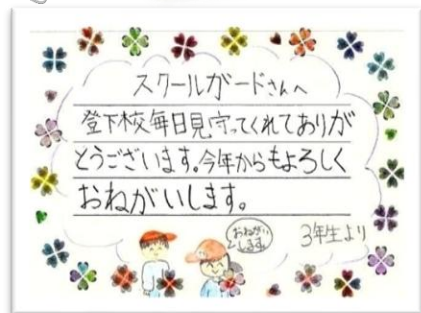 スクールガードさんへ
登下校毎日見守ってくれてありが
とうございます。今年からもよろしく
おねがいします。
おねがい
します。
3年生より